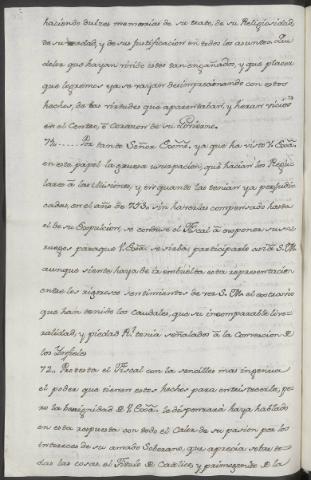 haciendo dulzes memorias de su trato, de su Religiosidad,
de su verdad, y de sus justificacion en todos los asuntos. Que
dolor que hayan vivido estos tan engañados, y que placer
que logremos ya se vayan desimpresionando con estos
hechos, de las virtudes que aparentaban, y heran vicios
en el Centro, ò Corazon de su
71. Por tanto Señor Exmô. ya que ha visto V. Excâ.
en este papel la gruesa usurpacion, que hacian los Regu
lares a las Misiones, y en quanto las tenian ya perjudi
cadas, en el año de 753. sin haverlas compensado hasta
el de su Expulsion, se contrae el Fiscal à exponer sus
ruegos paraque V. Excâ. se sirba participarlo asi à S. M.
aunque siente haya de ir embuelta esta representacion
entre los rigorosos sentimientos de ver S. M. el extravio
que han tenido los Caudales, que su incomparable libe-
ralidad, y piedad Rl. tenia señalados à la Conversion de
los Ynfieles
72. Protesta el Fiscal con la sencilles mas ingenua
el poder que tienen estos hechos para entristecerlo, pe
ro la benignidad de V. Excâ. le dispensará haya hablado
en esta respuesta con todo el Calor de su pasion por los
intereses de su amado Soberano, que aprecia sobre to-
das las cosas el Titulo de Catolico, y primogenito de la